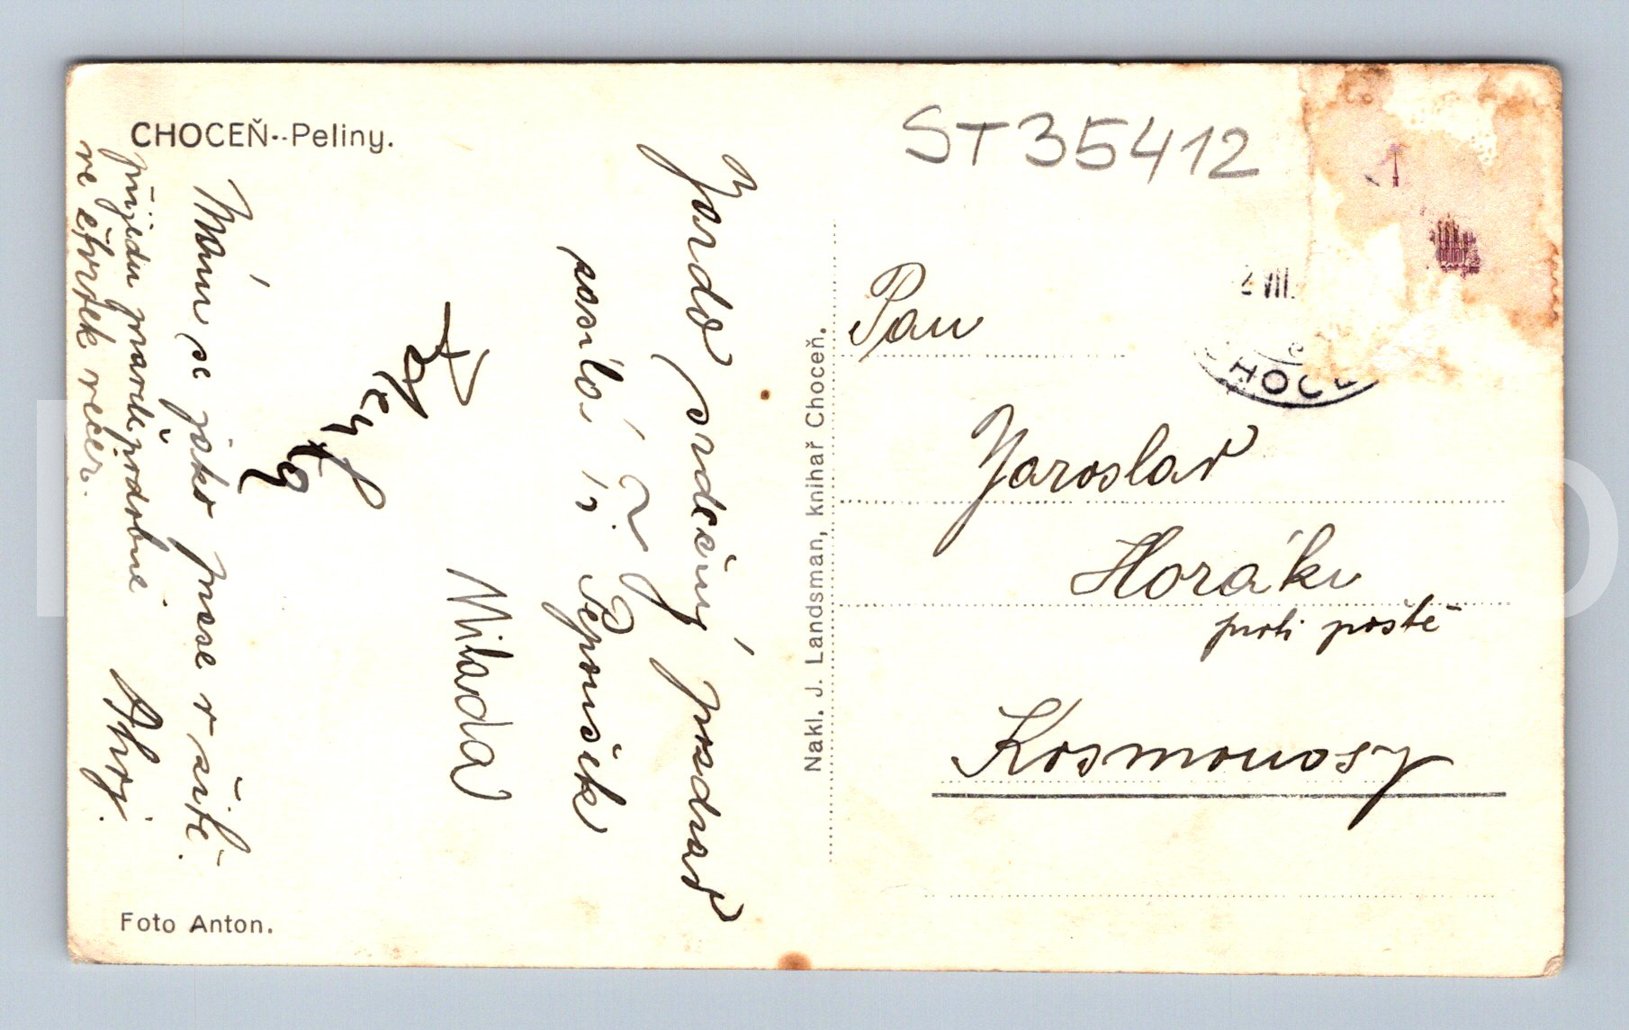 CHOCEŇ--Peliny.
ST35412
Jardo srdečný pozdrav
posílá Ti Pepoušek
Milada
Mám se jako prase v žitě.
přijedu pravděpodobně
ve čtvrtek večer.
Ahoj.
Foto Anton.
Nakl. J. Landsman, knihař Choceň.
VIII.
CHOC
Pan
Jaroslav
Horák
proti poště
Kosmonosy